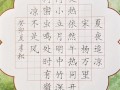 夏夜追凉
宋 杨万里
夜热依然午热同
开门小立月明中
竹深树密虫鸣处
时有微凉不是风